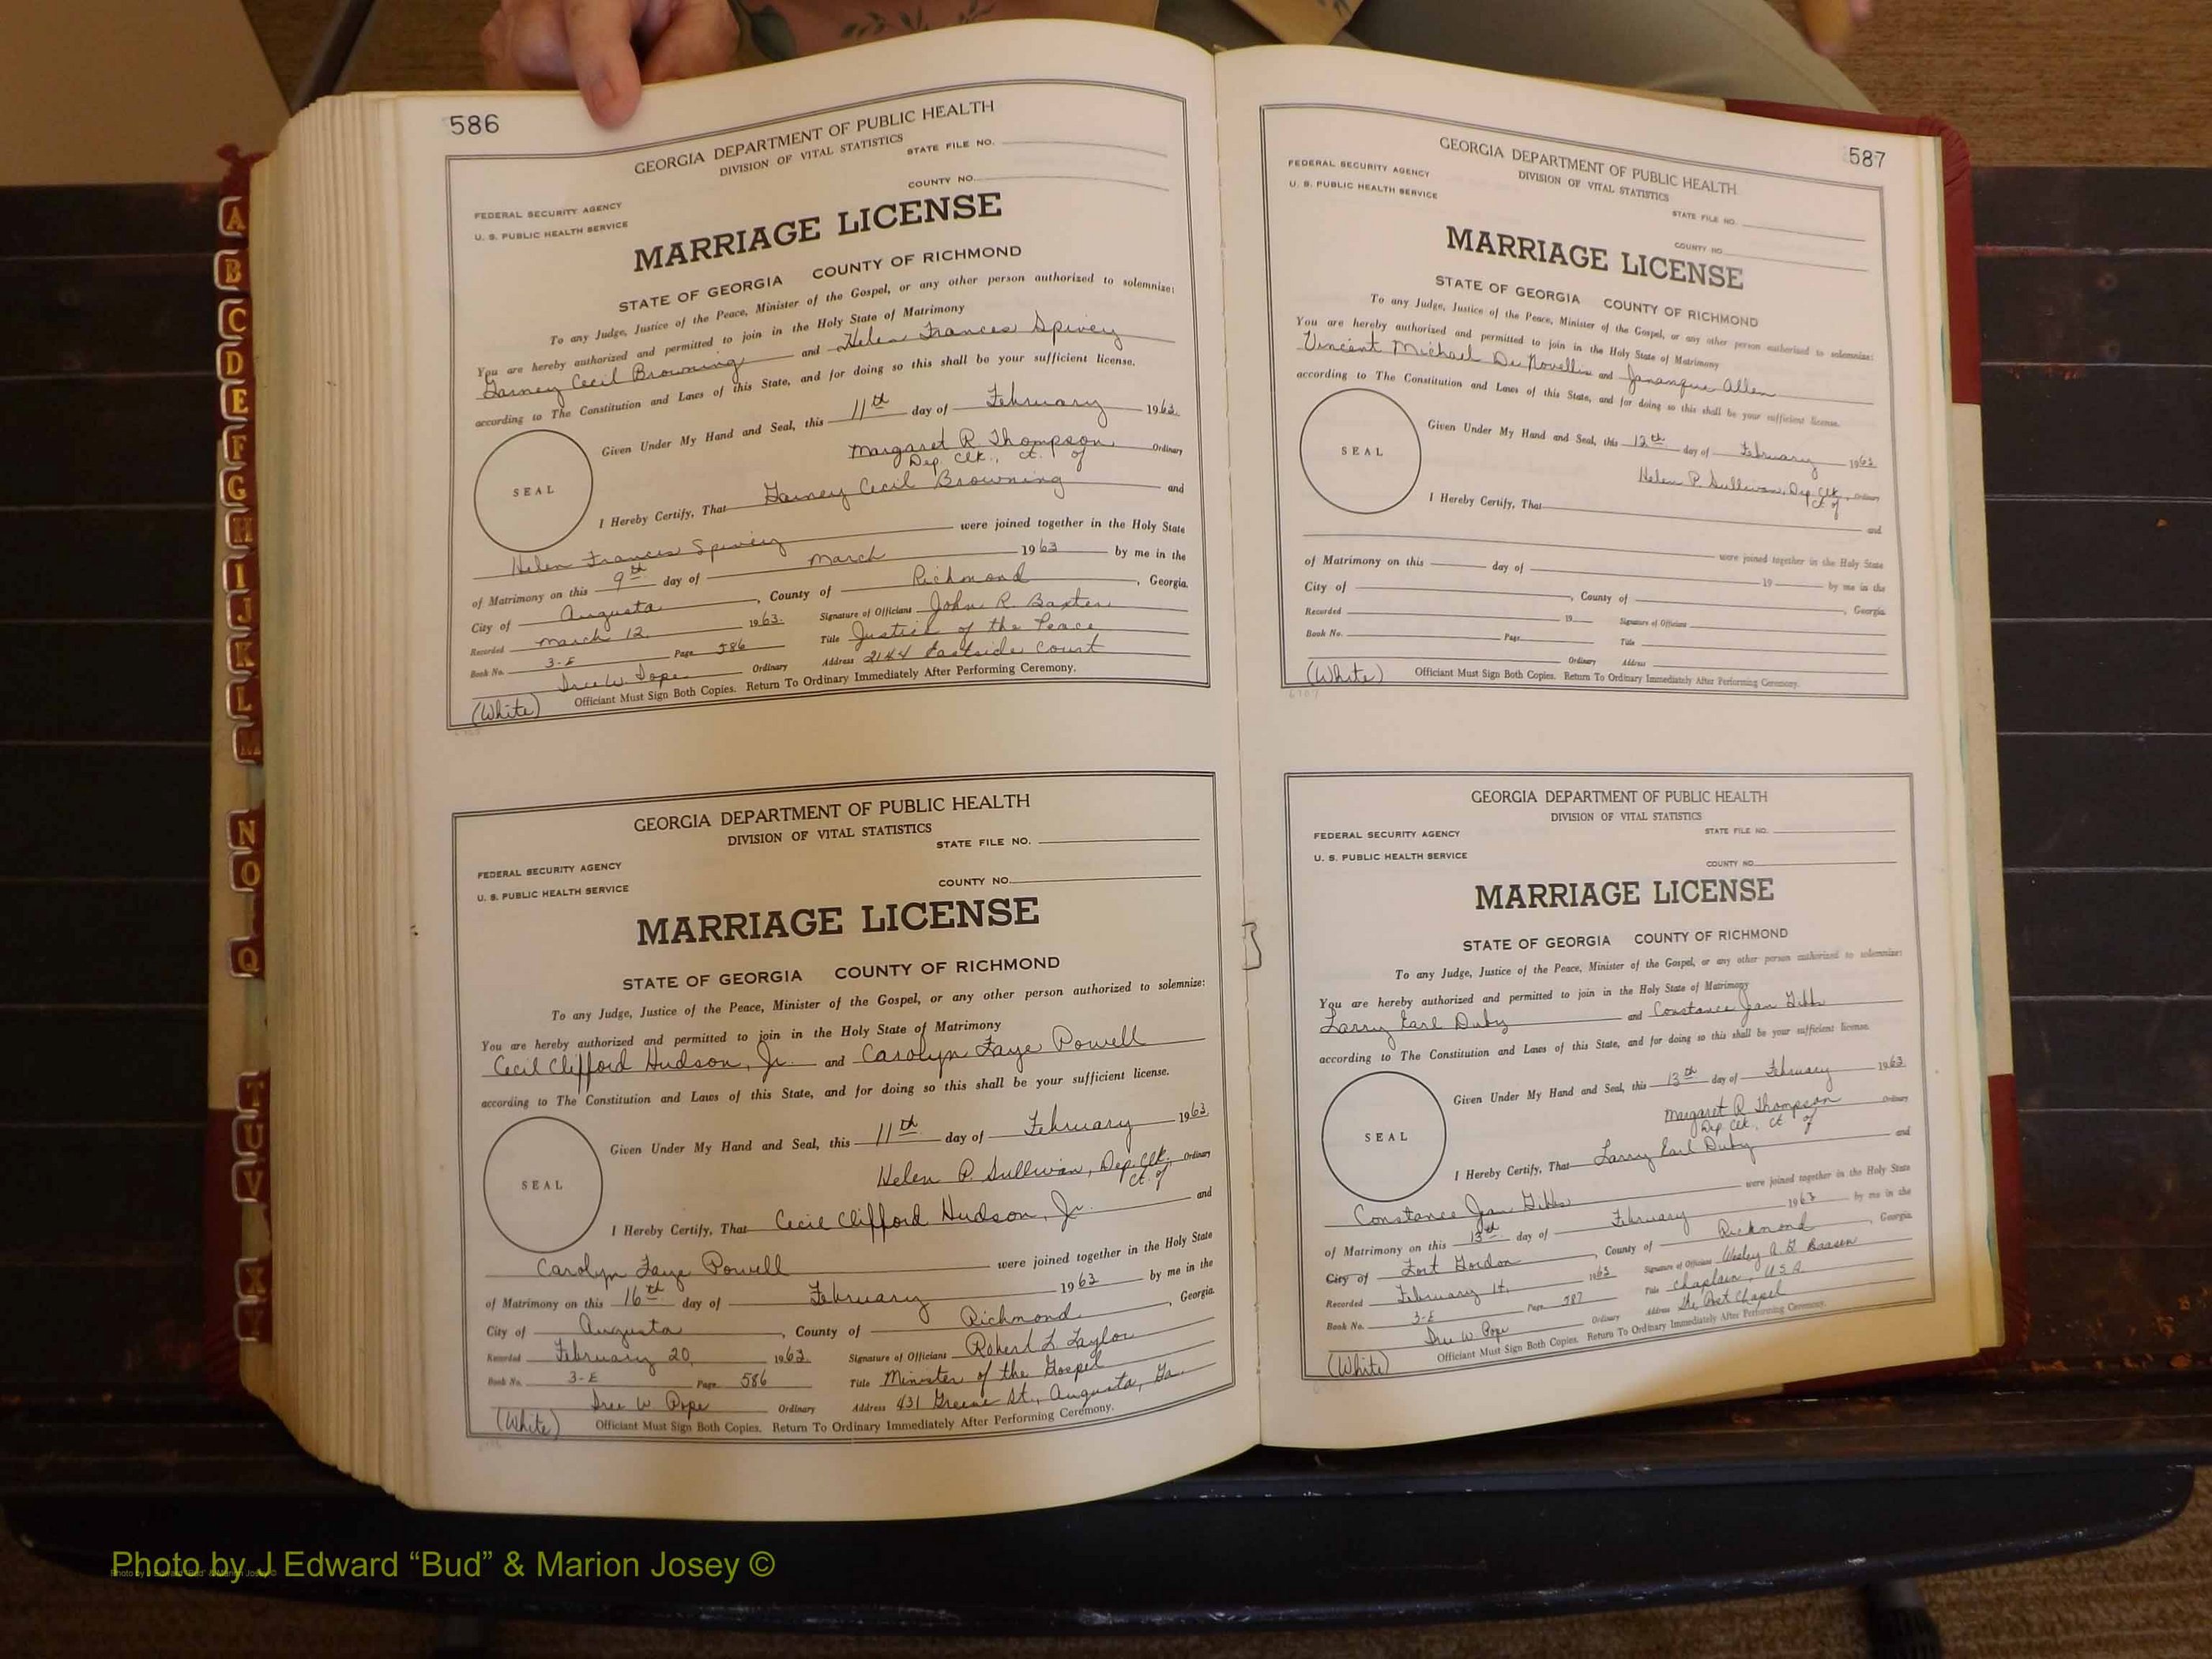 586
GEORGIA DEPARTMENT OF PUBLIC HEALTH
DIVISION OF VITAL STATISTICS
STATE FILE NO.
COUNTY NO.
FEDERAL SECURITY AGENCY
U. S. PUBLIC HEALTH SERVICE
MARRIAGE LICENSE
STATE OF GEORGIA COUNTY OF RICHMOND
To any Judge, Justice of the Peace, Minister of the Gospel, or any other person authorized to solemnize:
You are hereby authorized and permitted to join in the Holy State of Matrimony
Cecil Browning and Helen Frances Spivey
according to The Constitution and Laws of this State, and for doing so this shall be your sufficient license.
Given Under My Hand and Seal, this 11th day of February 1963
Margaret R Thompson Ordinary
Dep. Clk., Ct. of
SEAL
I Hereby Certify, That Cecil Browning and
Helen Frances Spivey were joined together in the Holy State
of Matrimony on this 9th day of March 1963 by me in the
City of Augusta, County of Richmond, Georgia.
Recorded March 12 1963. Signature of Officiant John R. Baxter
Book No. 3-E Page 586 Title Justice of the Peace
W. Pope Ordinary Address 2144 Eastside Court
(White) Officiant Must Sign Both Copies. Return To Ordinary Immediately After Performing Ceremony.
GEORGIA DEPARTMENT OF PUBLIC HEALTH
DIVISION OF VITAL STATISTICS
STATE FILE NO.
FEDERAL SECURITY AGENCY
U. S. PUBLIC HEALTH SERVICE
COUNTY NO.
MARRIAGE LICENSE
STATE OF GEORGIA COUNTY OF RICHMOND
To any Judge, Justice of the Peace, Minister of the Gospel, or any other person authorized to solemnize:
You are hereby authorized and permitted to join in the Holy State of Matrimony
Cecil Clifford Hudson, Jr. and Carolyn Faye Powell
according to The Constitution and Laws of this State, and for doing so this shall be your sufficient license.
Given Under My Hand and Seal, this 11th day of February 1963
Helen P. Sullivan, Dep. Clk. Ordinary
Ct. of
SEAL
I Hereby Certify, That Cecil Clifford Hudson, Jr. and
Carolyn Faye Powell were joined together in the Holy State
of Matrimony on this 16th day of February 1963 by me in the
City of Augusta, County of Richmond, Georgia.
Recorded February 20, 1963. Signature of Officiant Robert L. Taylor
Book No. 3-E Page 586 Title Minister of the Gospel
W Pope Ordinary Address 431 Greene St., Augusta, Ga.
(White) Officiant Must Sign Both Copies. Return To Ordinary Immediately After Performing Ceremony.
587
GEORGIA DEPARTMENT OF PUBLIC HEALTH
DIVISION OF VITAL STATISTICS
FEDERAL SECURITY AGENCY
U. S. PUBLIC HEALTH SERVICE
STATE FILE NO.
COUNTY NO.
MARRIAGE LICENSE
STATE OF GEORGIA COUNTY OF RICHMOND
To any Judge, Justice of the Peace, Minister of the Gospel, or any other person authorized to solemnize:
You are hereby authorized and permitted to join in the Holy State of Matrimony
Vincent Michael and Allen
according to The Constitution and Laws of this State, and for doing so this shall be your sufficient license.
Given Under My Hand and Seal, this 12th day of February 1963
Helen P. Sullivan, Dep. Clk., Ordinary
Ct. of
SEAL
I Hereby Certify, That and
were joined together in the Holy State
of Matrimony on this day of 19 by me in the
City of , County of , Georgia.
Recorded 19 Signature of Officiant
Book No. Page Title
Ordinary Address
(White) Officiant Must Sign Both Copies. Return To Ordinary Immediately After Performing Ceremony.
GEORGIA DEPARTMENT OF PUBLIC HEALTH
DIVISION OF VITAL STATISTICS
FEDERAL SECURITY AGENCY
STATE FILE NO.
U. S. PUBLIC HEALTH SERVICE
COUNTY NO.
MARRIAGE LICENSE
STATE OF GEORGIA COUNTY OF RICHMOND
To any Judge, Justice of the Peace, Minister of the Gospel, or any other person authorized to solemnize:
You are hereby authorized and permitted to join in the Holy State of Matrimony
Larry Earl Duby and Constance Jean Gibbs
according to The Constitution and Laws of this State, and for doing so this shall be your sufficient license.
Given Under My Hand and Seal, this 13th day of February 1963
Margaret R Thompson Ordinary
Dep. Clk., Ct. of
SEAL
I Hereby Certify, That Larry Earl Duby and
Constance Jean Gibbs were joined together in the Holy State
of Matrimony on this 13th day of February 1963 by me in the
City of Fort Gordon, County of Richmond, Georgia.
Recorded February 14, 1963 Signature of Officiant Wesley A. G. Baasen
Book No. 3-E Page 587 Title Chaplain, USA
W Pope Ordinary Address The Post Chapel
(White) Officiant Must Sign Both Copies. Return To Ordinary Immediately After Performing Ceremony.
A
B
C
D
E
F
G
H
I
J
K
L
M
N
O
Q
T
U
V
X
Y
Photo by J Edward “Bud” & Marion Josey ©